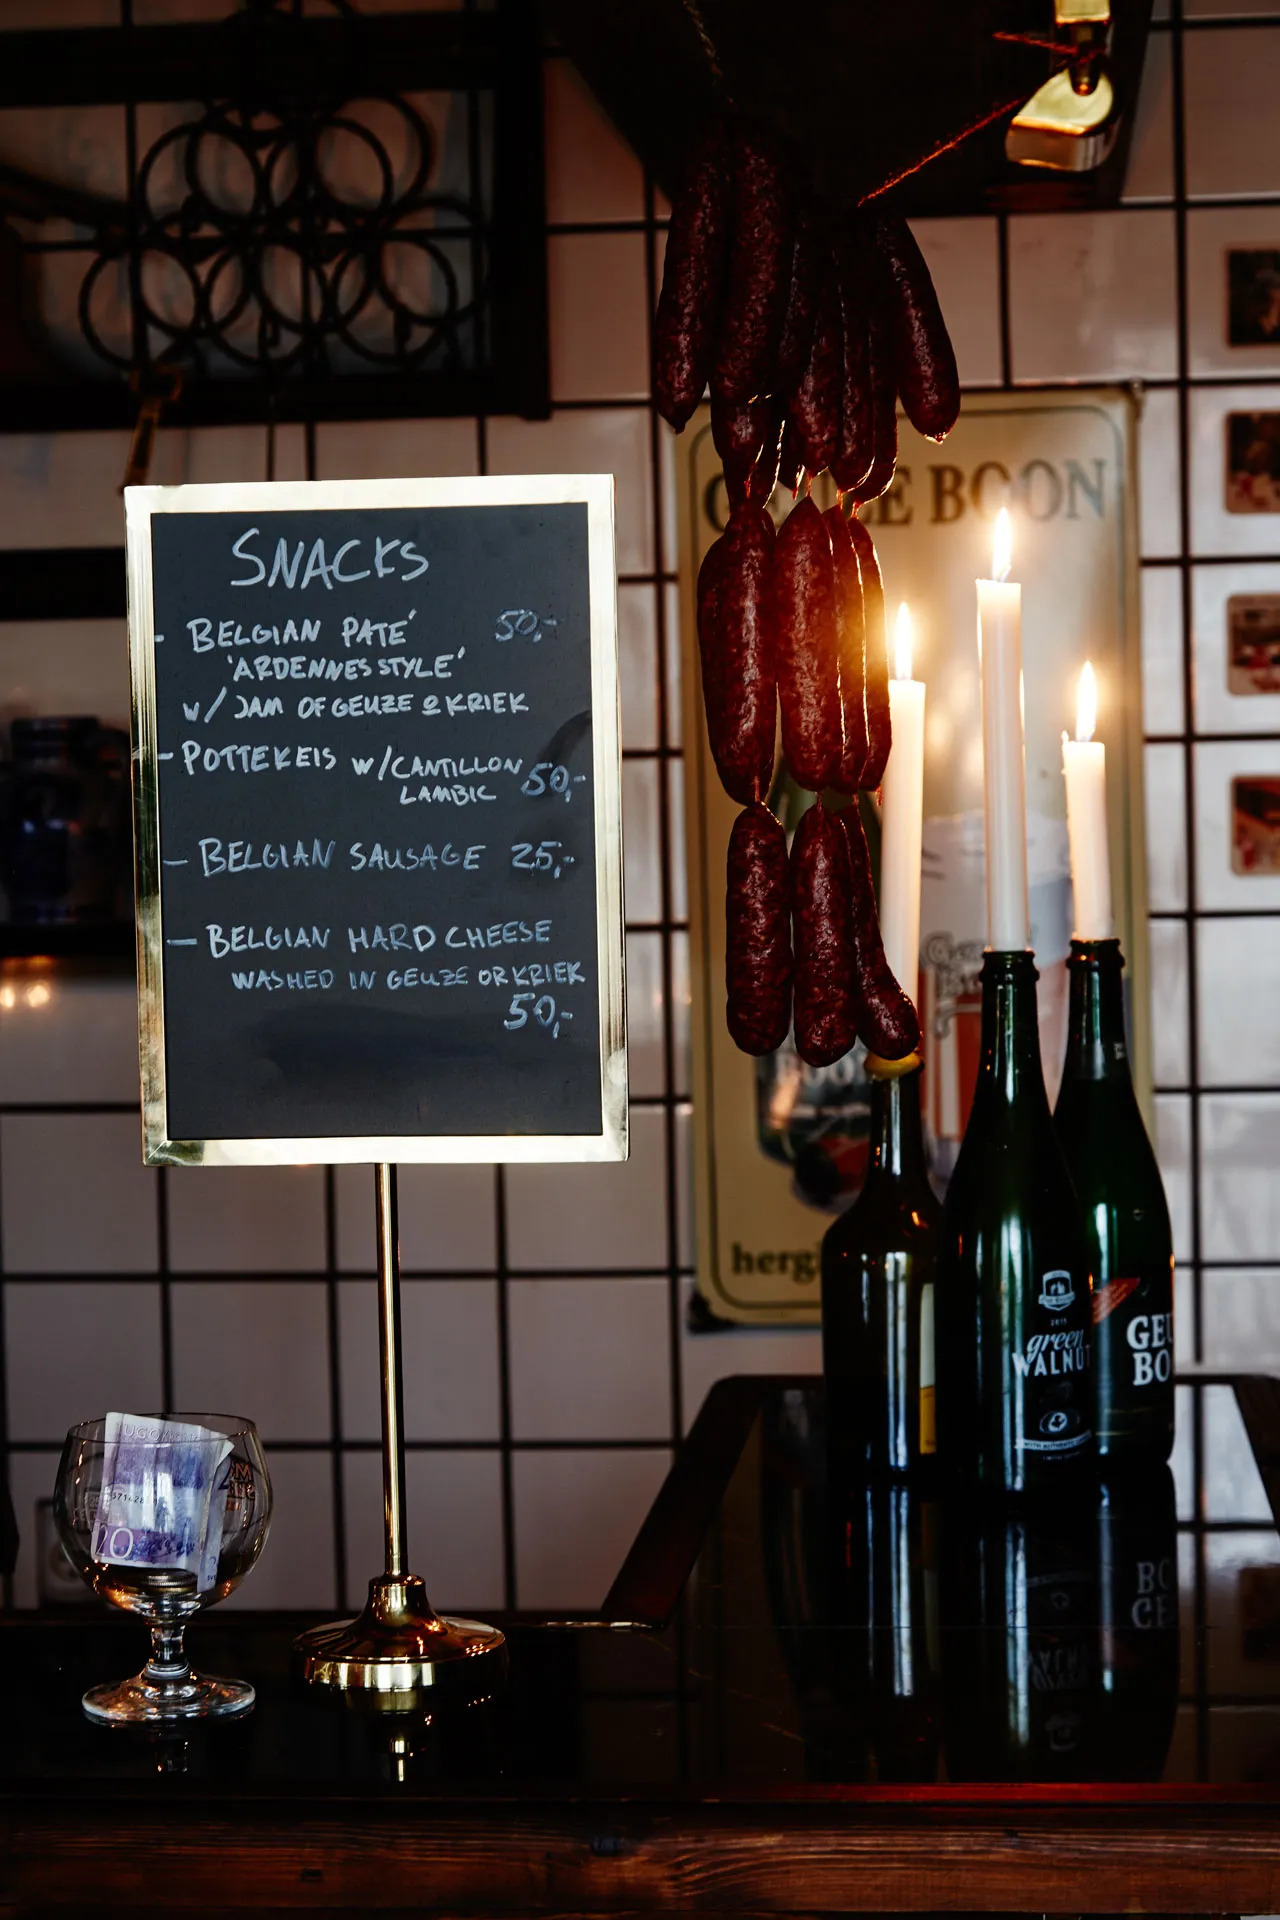 SNACKS
- BELGIAN PATÉ 50,-
'ARDENNES STYLE'
w/ JAM OF GEUZE & KRIEK
- POTTEKEIS w/CANTILLON 50,-
LAMBIC
- BELGIAN SAUSAGE 25,-
- BELGIAN HARD CHEESE
WASHED IN GEUZE OR KRIEK
50,-
BOON
herg
2015
green
WALNUT
GEU
BO
20